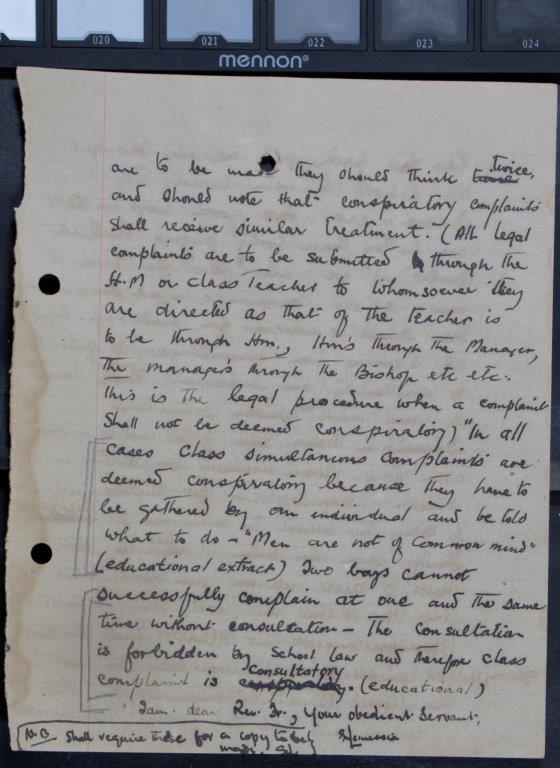 020 021 022 023 024
mennon®
are to be made they should think twice,
and should note that conspiratory complaints
shall receive similar treatment. (All legal
complaints are to be submitted through the
H.M or Class Teacher to whomsoever they
are directed as that of the Teacher is
to be through Hm., Hm's through the Manager,
the manager's through the Bishop etc etc.
This is the legal procedure when a complaint
shall not be deemed conspiratory) "In all
cases class simultaneous complaints are
deemed conspiratory because they have to
be gathered by an individual and be told
what to do - "Men are not of common mind"
(educational extract) Two boys cannot
successfully complain at one and the same
time without consultation - The Consultation
is forbidden by School law and therefore class
complaint is Consultatory. (educational)
I am. dear Rev. Fr., Your obedient Servant,
N.B. Shall require these for a copy to be
made.